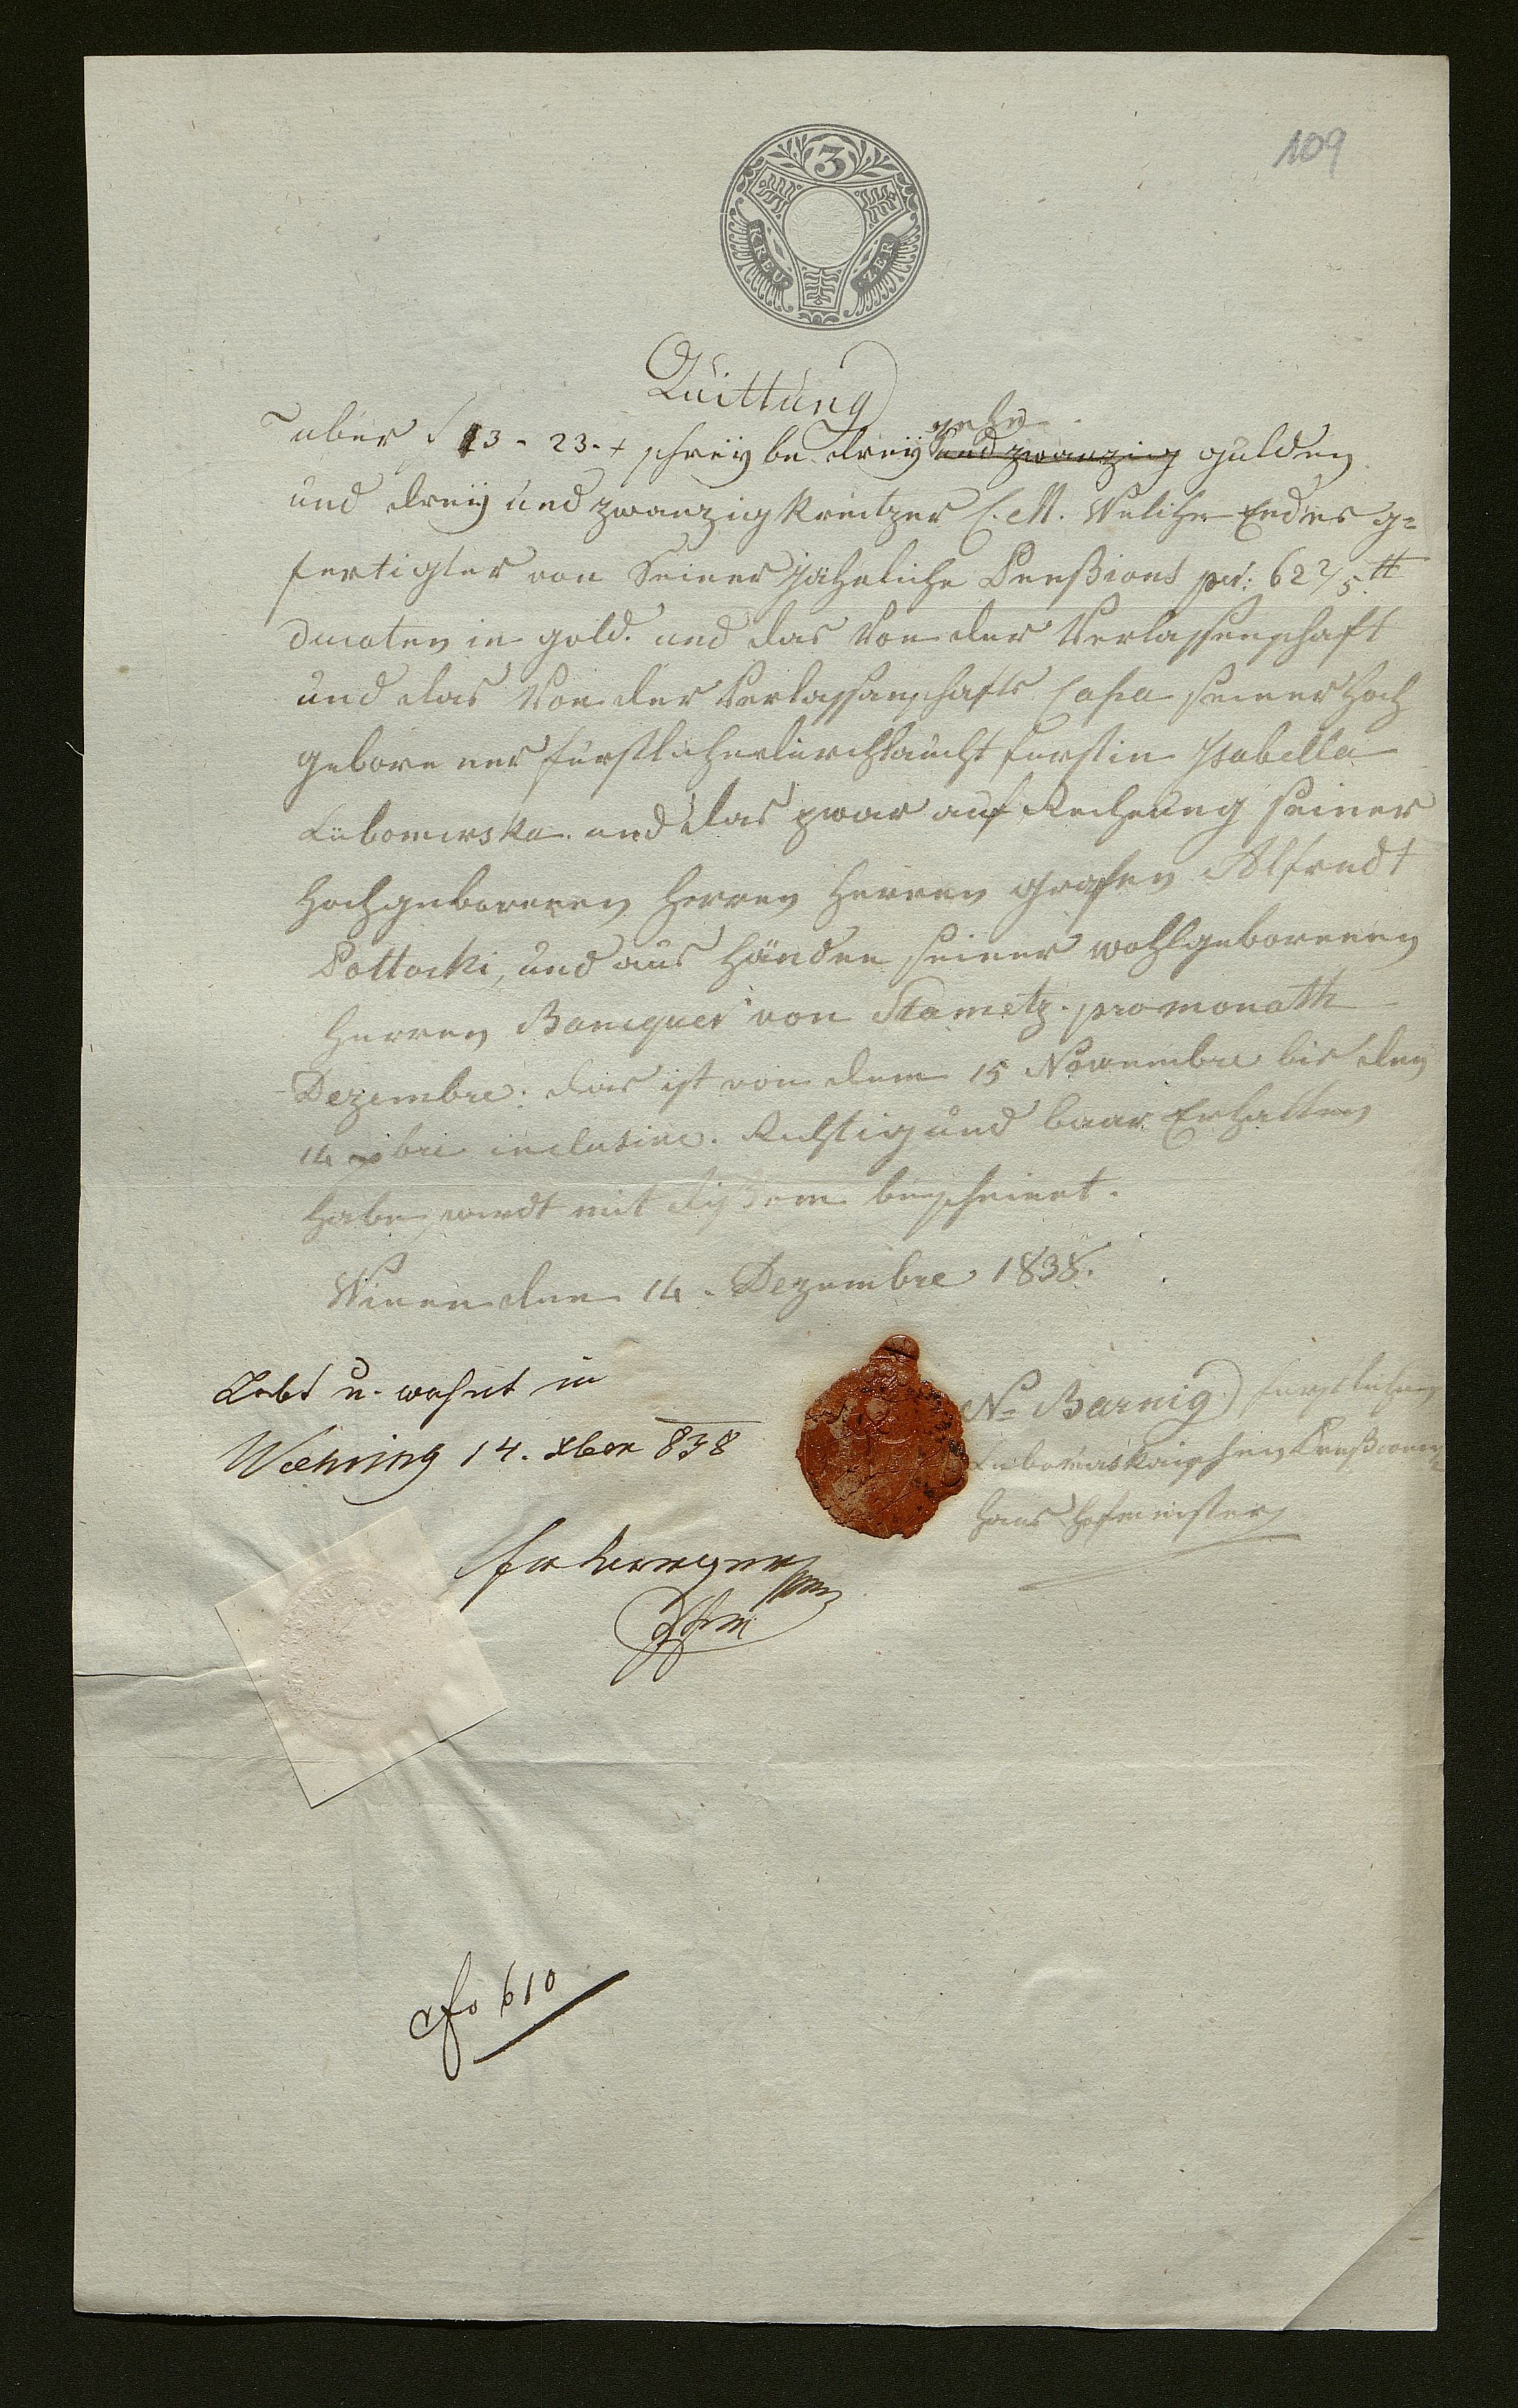 109
3
KREU ZER
Quittung
über f 13 - 23 - x schreybe dreyzehn und zwanzig gulden
und dreÿ und zwanzig Kreutzer C. M. Welche Endes ge=
fertigter von Seiner Jährliche Penßions pr: 62 2/5 tt
Ducaten in gold. und das Von der Verlassenschaft
und das Von der Verlassenschafts Cassa seiner Hoch
geborener fürstlicher durchlaucht fürstin Isabella
Lubomirska. und das zwar auf Rechnung seiner
Hochgeborenen Herren Herren Grafen Alfredt
Pottocki, und aus Händen seiner wohlgeborenen
Herren Banquer von Stametz. pro monath
Dezembre: das ist von dem 15 Novembre bis den
14 xbre inclusive. Richtig und baar Erhalten
Habe, wirdt mit dißem bescheinet.
Wienn den 14. Dezembre 1838.
Lebt u. wohnt in
Waehring 14. Xber 838
N= Barnig fürstlichen
Lubomirskaischen Penßions=
Haus Hofmeister
fo 610